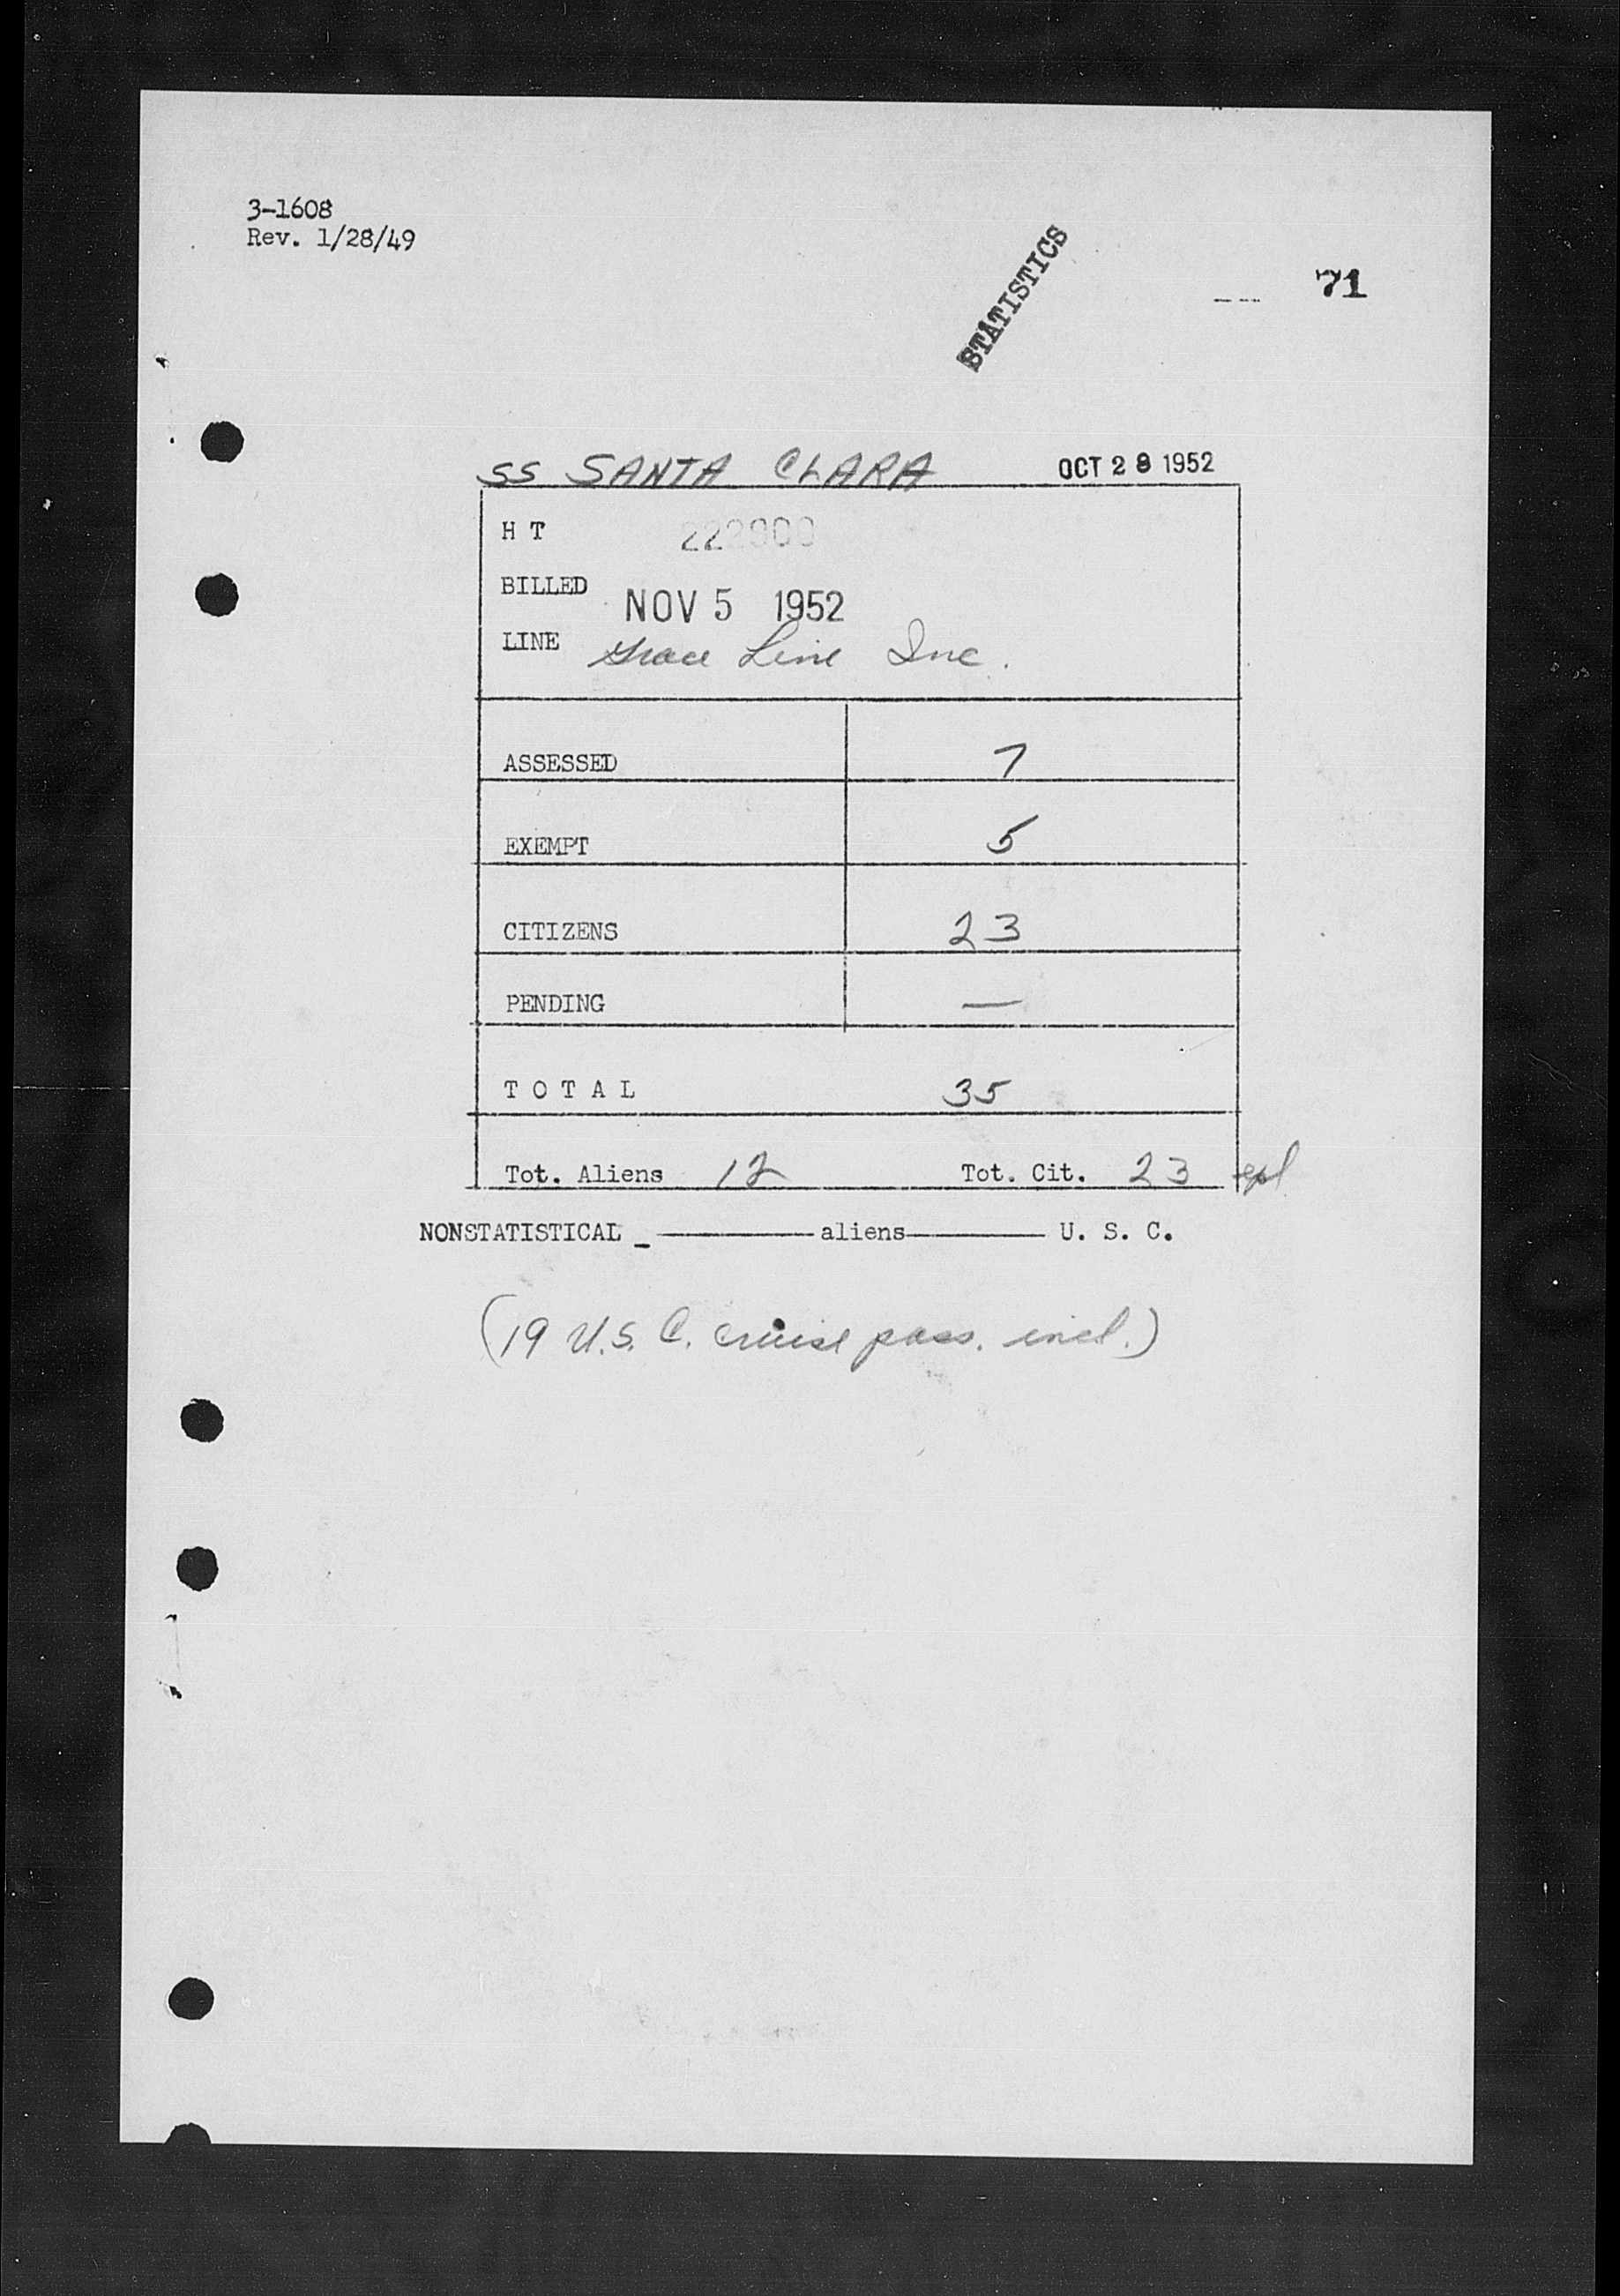 3-1608
Rev. 1/28/49
STATISTICS
71
SS SANTA CLARA OCT 28 1952
H T
BILLED NOV 5 1952
LINE Grace Line Inc.
ASSESSED 7
EXEMPT 5
CITIZENS 23
PENDING —
T O T A L 35
Tot. Aliens 12 Tot. Cit. 23
NONSTATISTICAL _ ———— aliens ———— U. S. C.
(19 U.S.C. cruise pass. incl.)